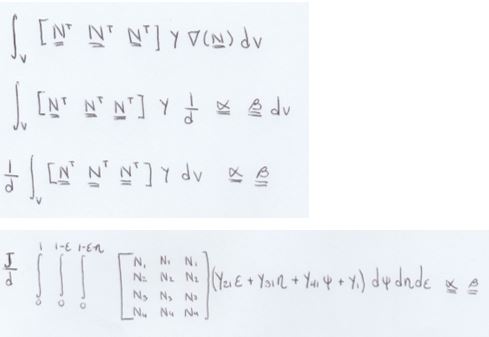 ∫_V [N^T N^T N^T] Y ∇(N) dv
∫_V [N^T N^T N^T] Y 1/d α β dv
1/d ∫_V [N^T N^T N^T] Y dv α β
J/d ∫_0^1 ∫_0^{1-ε} ∫_0^{1-εn} [N₁ N₁ N₁; N₂ N₂ N₂; N₃ N₃ N₃; N₄ N₄ N₄] (Y₂₁ε + Y₃₁n + Y₄₁ψ + Y₁) dψ dn dε α β